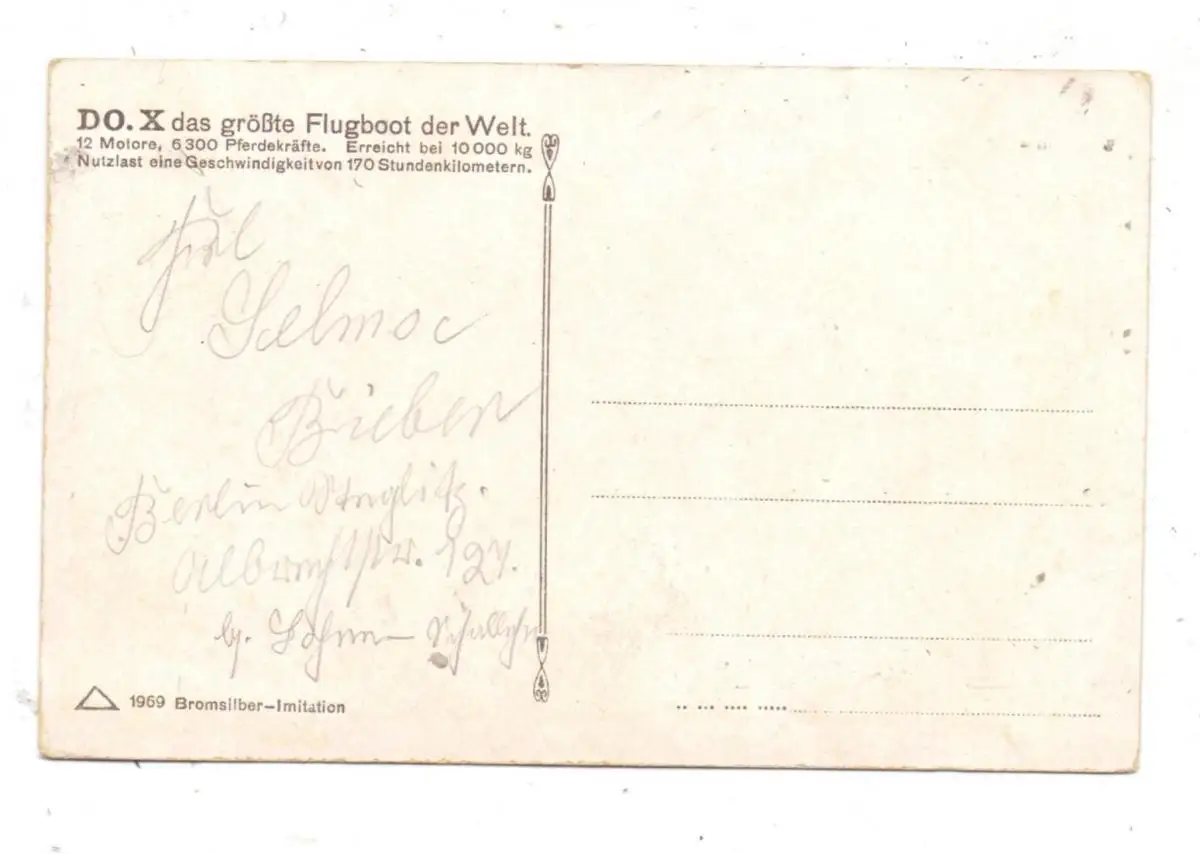 DO. X das größte Flugboot der Welt.
12 Motore, 6300 Pferdekräfte. Erreicht bei 10000 kg
Nutzlast eine Geschwindigkeit von 170 Stundenkilometern.
Bieber
Berlin Steglitz.
Albrechtstr. 127.
1969 Bromsilber-Imitation